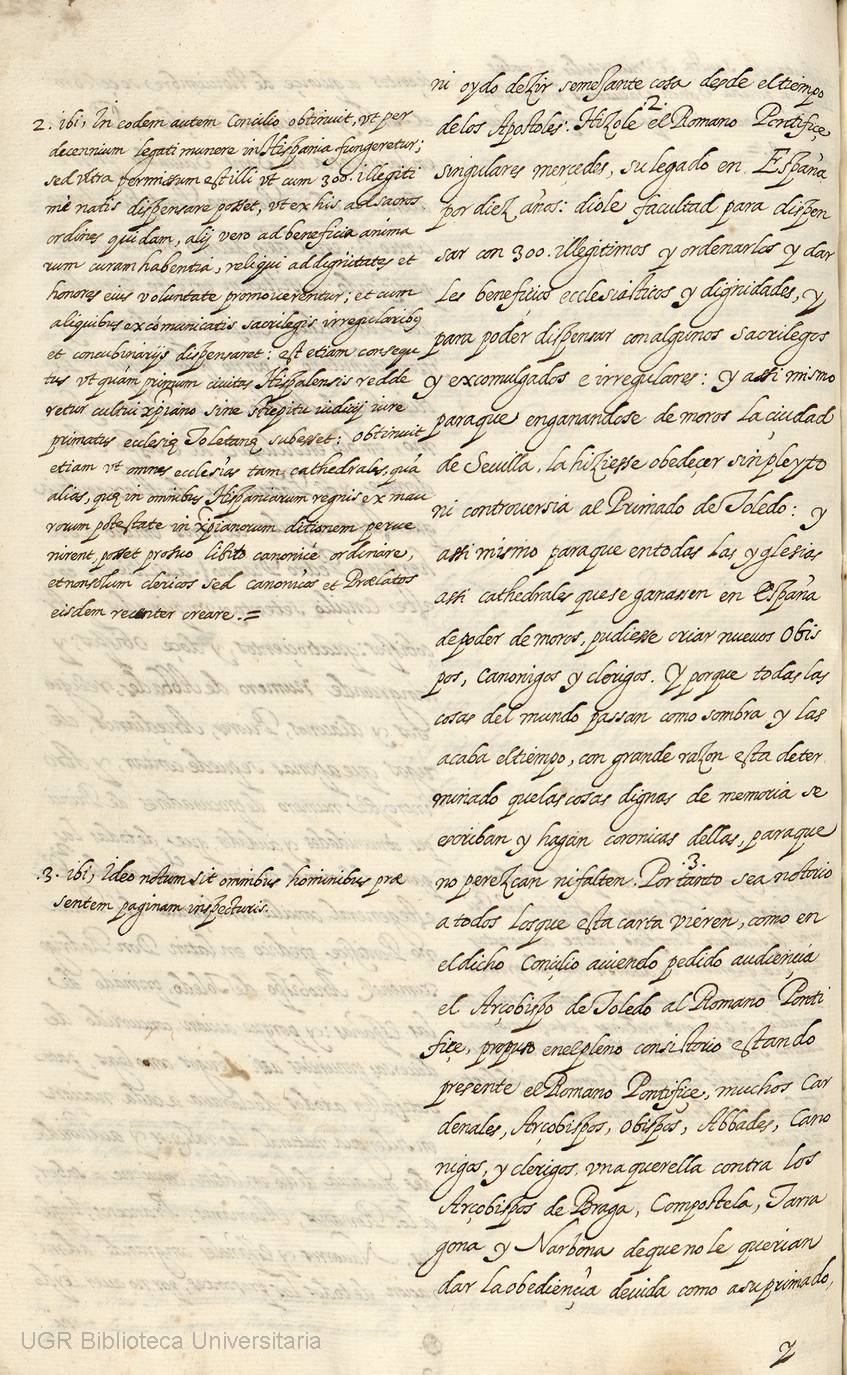 2. ibi, In eodem autem Concilio obtinuit, vt per
decennium legati munere in Hispania fungeretur;
sed vltra permissum est illi vt cum 300. illegiti
mè natis dispensare posset, vt ex his ad sacros
ordines quidam, alij vero ad beneficia anima
rum curam habentia, reliqui ad dignitates et
honores eius voluntate promouerentur; et cum
aliquibus excōmunicatis sacrilegis irregularibꝰ
et concubinarijs dispensaret: est etiam consequ
tus vt quàm primum ciuitas Hispalensis redde
retur cultui xp̄iano sine strepitu iudicij iure
primatus ecclesię Toletanę subesset: obtinuit
etiam vt omnes ecclesias tam cathedrales, quā
alias, quę in omnibus Hispaniarum regnis ex mau
rorum potestate in xp̄ianorum ditionem perue
nirent, posset pro suo libito canonicè ordinare,
et non solum clericos sed canonicos et Prælatos
eisdem recenter creare.=
.3. ibi, Ideo notum sit omnibus hominibus præ
sentem paginam inspecturis.
ni oydo dezir semejante cosa desde el tiempo
de los Apostoles. .2. Hizole el Romano Pontifiçe
singulares merçedes, su legado en España
por diez años: diole facultad para dispen
sar con 300. illegitimos y ordenarlos y dar
les benefiçios ecclesiasticos y dignidades, y
para poder dispensar con algunos sacrilegos
y excomulgados e irregulares: y assi mismo
para que enganandose de moros la çiudad
de Seuilla, la hiziesse obedeçer sin pleyto
ni controuersia al Primado de Toledo: y
assi mismo para que en todas las yglesias
assi cathedrales que se ganassen en España
de poder de moros, pudiesse criar nueuos Obis
pos, Canonigos y clerigos. Y porque todas las
cosas del mundo passan como sombra y las
acaba el tiempo, con grande razon esta deter
minado que las cosas dignas de memoria se
escriban y hagan coronicas dellas, para que
no perezcan ni falten. .3. Por tanto sea notorio
a todos los que esta carta vieren, como en
el dicho Conçilio auiendo pedido audiençia
el Arçobispo de Toledo al Romano Ponti
fiçe, propuso en el pleno consistorio estando
presente el Romano Pontifiçe, muchos Car
denales, Arçobispos, Obispos, Abbades, Cano
nigos, y clerigos, vna querella contra los
Arçobispos de Braga, Compostela, Tarra
gona y Narbona de que no le querian
dar la obediençia deuida como a su primado,
y
UGR Biblioteca Universitaria